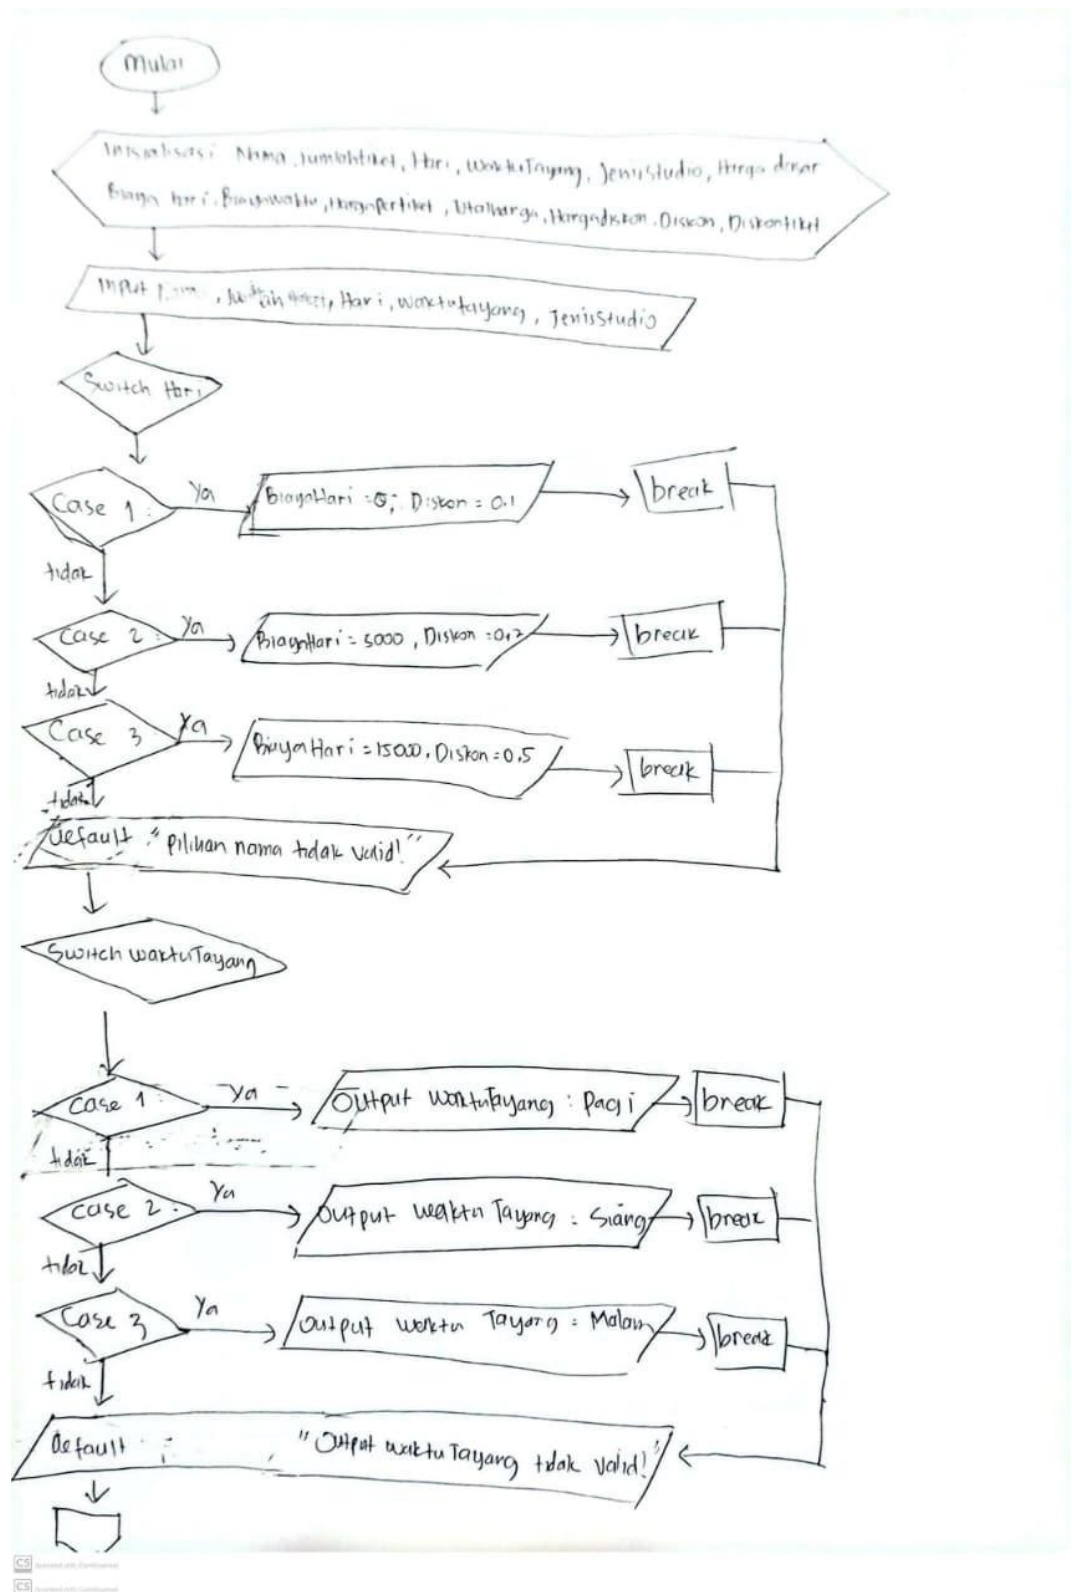 Mulai
Inisialisasi Nama, Jumlahtiket, Hari, WaktuTayang, JenisStudio, Harga dasar
Biaya hari, Biayawaktu, Hargapertiket, totalharga, Hargadiskon, Diskon, Diskontiket
Input, Hari, waktutayang, JenisStudio
Switch Hari
Case 1: Ya BiayaHari = 0; Diskon = 0.1 break
tidak
Case 2: Ya BiayaHari = 5000, Diskon = break
tidak
Case 3: Ya BiayaHari = 15000, Diskon = 0.5 break
tidak
Default "Pilihan nama tidak valid!"
Switch waktuTayang
Case 1: Ya Output WaktuTayang : Pagi break
tidak
Case 2: Ya Output Waktu Tayang : Siang break
tidak
Case 3 Ya Output waktu Tayang : Malam break
tidak
Default : "Output waktuTayang tidak valid!"
CS Scanned with CamScanner
CS Scanned with CamScanner